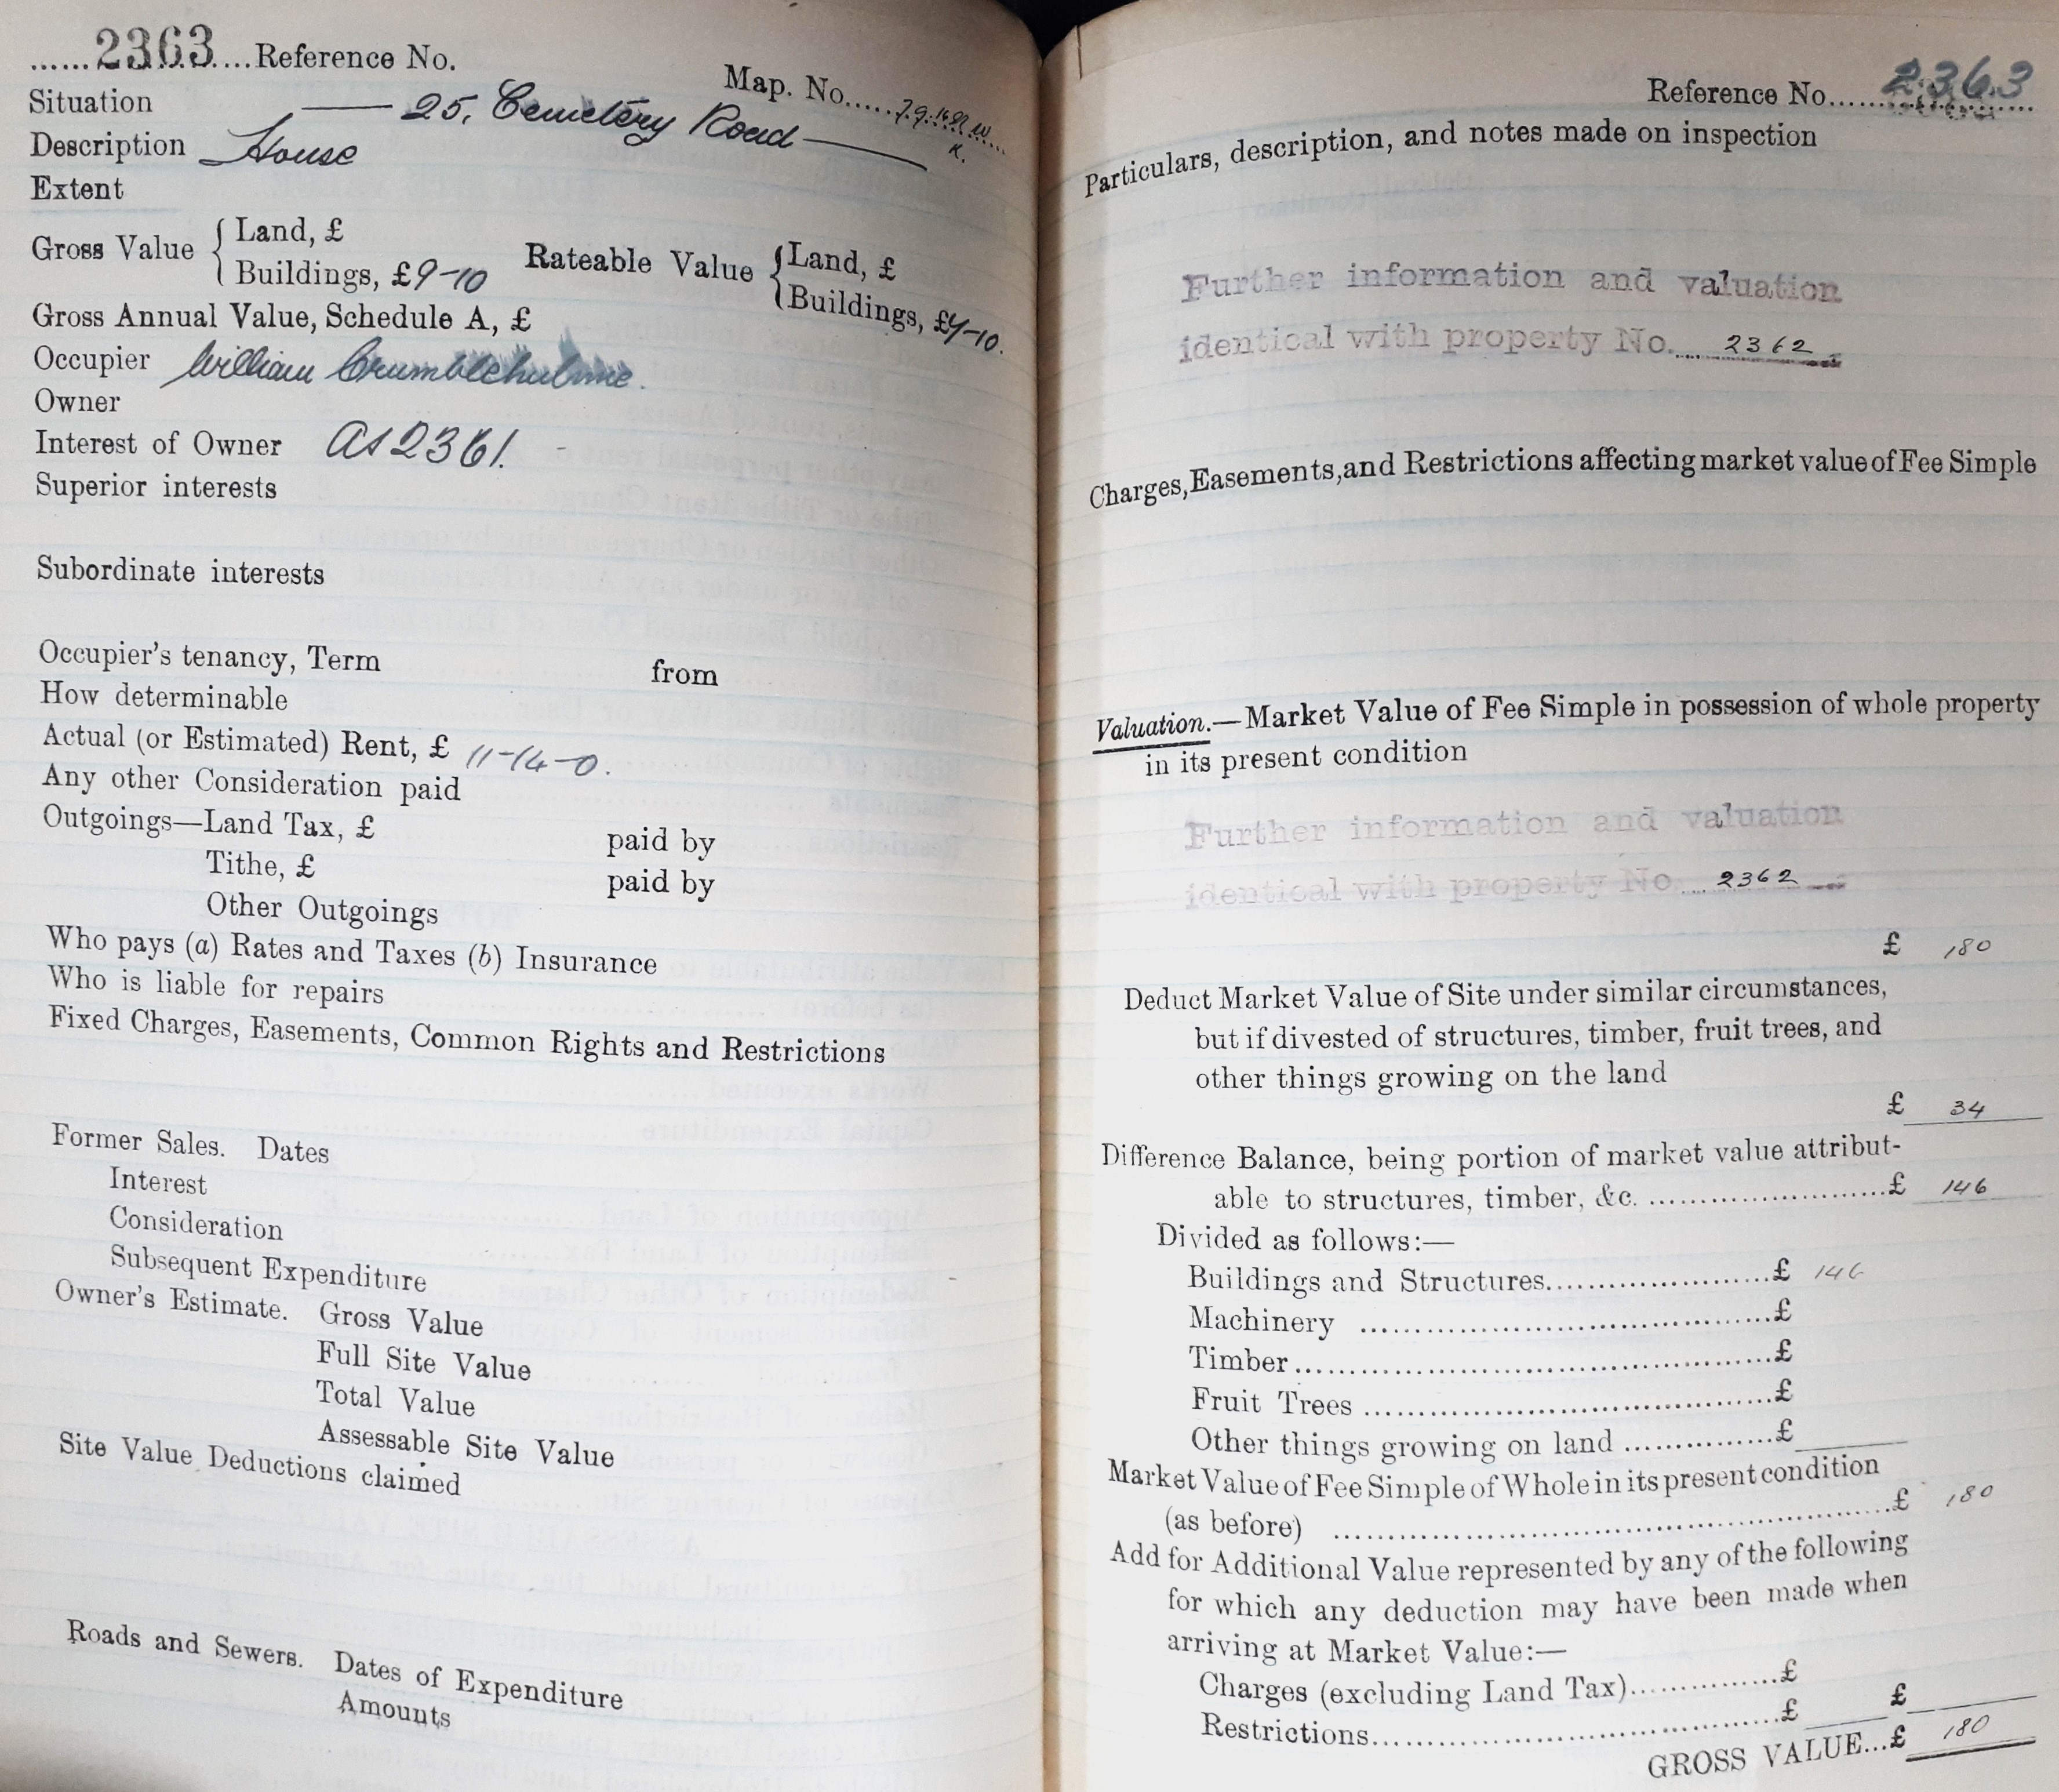 ......2363....Reference No.
Map. No.....79.16 SW
K.
Situation —— 25, Cemetery Road ——
Description House
Extent
Gross Value { Land, £
Buildings, £9-10
Rateable Value { Land, £
Buildings, £7-10.
Gross Annual Value, Schedule A, £
Occupier William Crumblehulme.
Owner
Interest of Owner as 2361. -
Superior interests
Subordinate interests
Occupier's tenancy, Term from
How determinable
Actual (or Estimated) Rent, £ 11-14-0.
Any other Consideration paid
Outgoings—Land Tax, £ paid by
Tithe, £ paid by
Other Outgoings
Who pays (a) Rates and Taxes (b) Insurance
Who is liable for repairs
Fixed Charges, Easements, Common Rights and Restrictions
Former Sales. Dates
Interest
Consideration
Subsequent Expenditure
Owner's Estimate. Gross Value
Full Site Value
Total Value
Assessable Site Value
Site Value Deductions claimed
Roads and Sewers. Dates of Expenditure
Amounts
Reference No....2363
Particulars, description, and notes made on inspection
Further information and valuation
identical with property No. 2362
Charges, Easements, and Restrictions affecting market value of Fee Simple
Valuation.—Market Value of Fee Simple in possession of whole property
in its present condition
Further information and valuation
identical with property No. 2362
£ 180
Deduct Market Value of Site under similar circumstances,
but if divested of structures, timber, fruit trees, and
other things growing on the land
£ 34
Difference Balance, being portion of market value attribut-
able to structures, timber, &c. ..............................£ 146
Divided as follows:—
Buildings and Structures..........................£ 146
Machinery ..................................................£
Timber..........................................................£
Fruit Trees ..................................................£
Other things growing on land .................£
Market Value of Fee Simple of Whole in its present condition
(as before) ..............................................................£ 180
Add for Additional Value represented by any of the following
for which any deduction may have been made when
arriving at Market Value:—
Charges (excluding Land Tax)..................£
Restrictions..................................................£ £
GROSS VALUE...£ 180